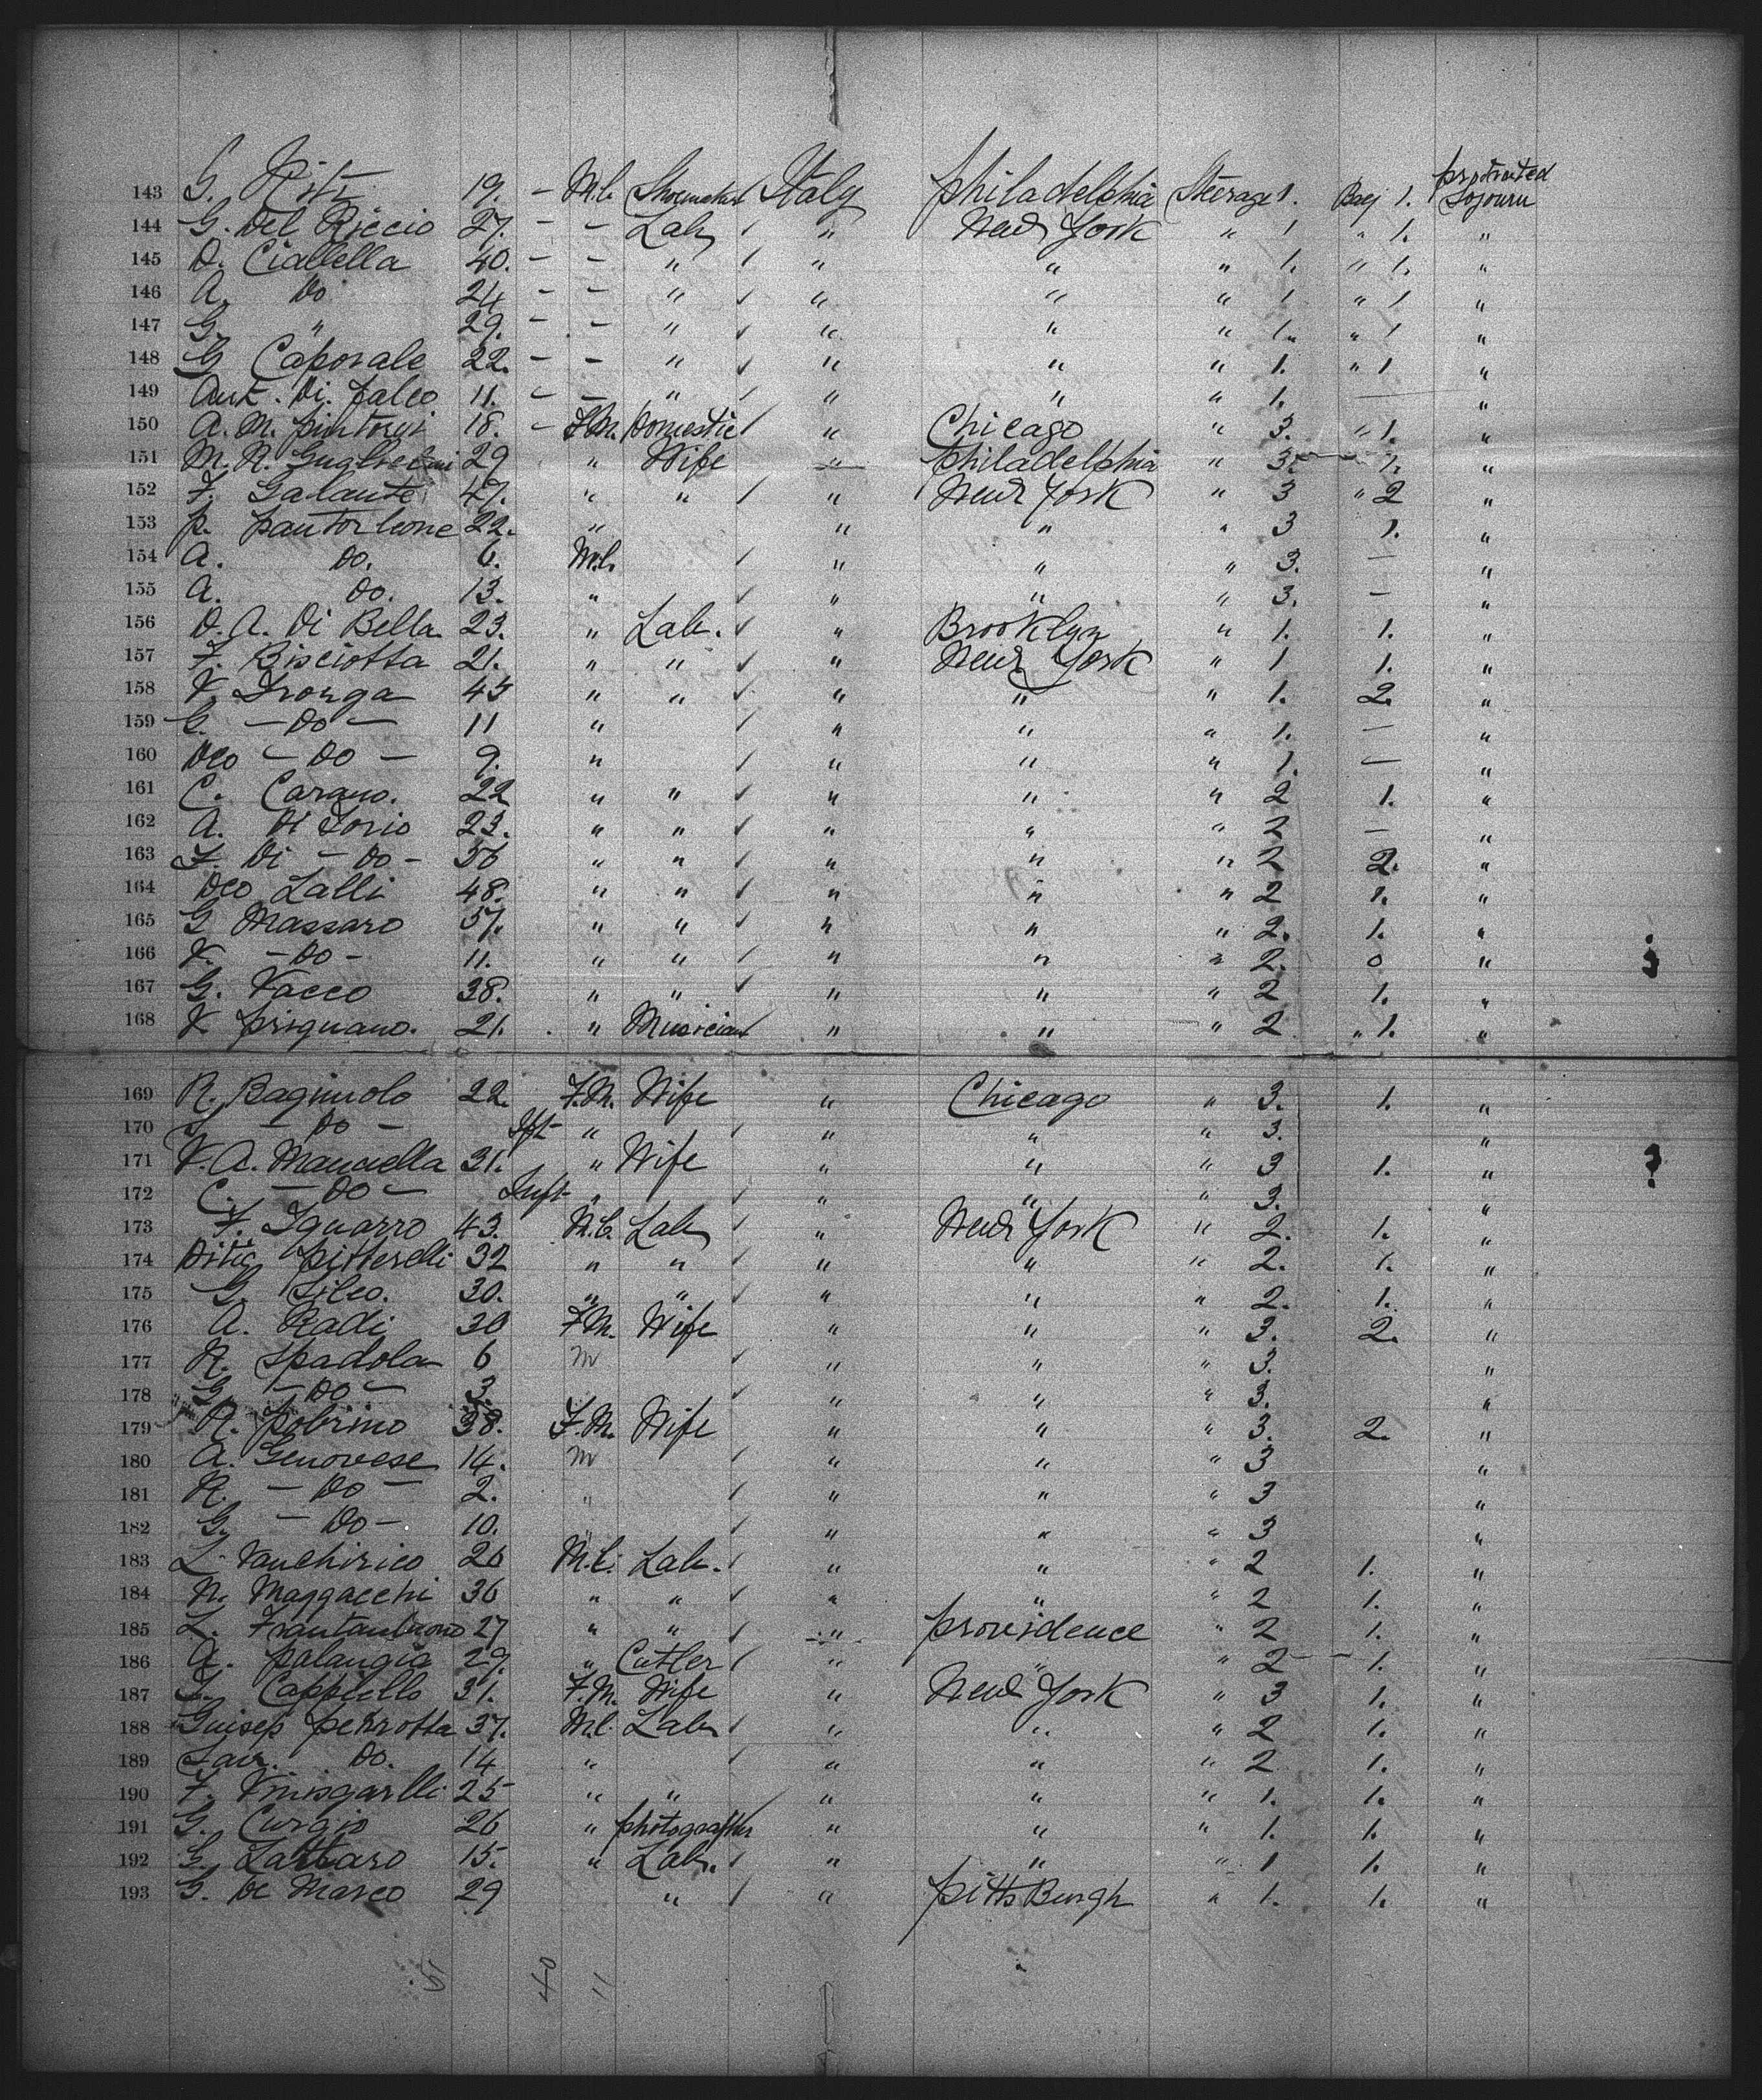 143 G. Risti 19. – M.l. Shoemaker Italy Philadelphia Steerage 1. Bag 1. protracted Sojourn
144 G. Del Riccio 27. – – Lab ✓ " New York " 1 " 1. "
145 D. Ciallella 40. – – " ✓ " " " 1. " 1. "
146 A. Do 24 – – " ✓ " " " 1 " 1 "
147 G. " 29. – – " ✓ " " " 1. " 1 "
148 G Caporale 22. – – " ✓ " " " 1. " 1 "
149 Ant. Di. Falco 11. – – " ✓ " " " 1. — "
150 A. M. 18. – F.M. Domestic ✓ " Chicago " 3. " 1. "
151 M. R. Guglielmi 29 " Wife " Philadelphia " 3. – 1. "
152 F. Galante 47. " " ✓ " New York " 3 " 2 "
153 P. Pantorleone 22. " " " " 3 1. "
154 A. Do. 6. M.l. ✓ " " " 3. — "
155 A. Do. 13. " ✓ " " " 3. – "
156 D. A. Di Bella 23. " Lab. ✓ " Brooklyn " 1. 1. "
157 F. Bisciotta 21. " " ✓ " New York " 1 1. "
158 V. 45 " " ✓ " " " 1. 2. "
159 G. – Do – 11 " ✓ " " " 1. — "
160 Deo – Do – 9. " ✓ " " " 1. — "
161 C. Carano. 22 " " ✓ " " " 2 1. "
162 A. Di Iorio 23. " " ✓ " " " 2 — "
163 F. Di – Do – 56 " " ✓ " " " 2 2. "
164 Deo Lalli 48. " " ✓ " " " 2 1. "
165 G Massaro 57. " " ✓ " " " 2. 1. "
166 V. – Do – 11. " " ✓ " " " 2. 0 "
167 G. Vacco 38. " " ✓ " " " 2 1. "
168 V Prignano. 21. . " Musician ✓ " " " 2 " 1. "
169 R. Bagnuolo 22. F.M. Wife " Chicago " 3. 1. "
170 – Do – Ift " ✓ " " " 3. "
171 V. A. Mancella 31. " Wife " " " 3 1. " ?
172 C. – Do – Inft " ✓ " " " 3. "
173 F. Squarro 43. M.l. Lab ✓ " New York " 2. 1. "
174 Pitterelli 32 " " ✓ " " " 2. 1. "
175 G. Sileo. 30. " " ✓ " " " 2. 1. "
176 A. Radi 30 F.M. Wife " " " 3. 2. "
177 R. Spadola 6 m ✓ " " " 3. "
178 G – Do – 3. ✓ " " " 3. "
179 R. Pobrino 38. F.M. Wife " " " 3. 2. "
180 A. Genovese 14. m ✓ " " " 3 "
181 R. – Do – 2. " ✓ " " " 3 "
182 G. – Do – 10. " ✓ " " " 3 "
183 L. Vanchirico 26 M.l. Lab. ✓ " " " 2 1. "
184 N. Maggacchi 36 " " ✓ " " " 2 1. "
185 L. Frantantuono 27 " " ✓ " Providence " 2 1. "
186 A. Palangia 29. " Cutler ✓ " " " 2 – – 1. "
187 Cappiello 31. F.M. Wife " New York " 3 1. "
188 Guisep Perrotta 37. M.l. Lab ✓ " " " 2 1. "
189 Do. 14 " ✓ " " " 2 1. "
190 F. 25 " " ✓ " " " 1. 1. "
191 G. Curgio 26 " Photographer " " " 1. 1. "
192 G. Lattaro 15. " Lab. ✓ " " " 1 1. "
193 G. De Marco 29 " ✓ " PittsBurgh " 1. 1. "
5 40 11